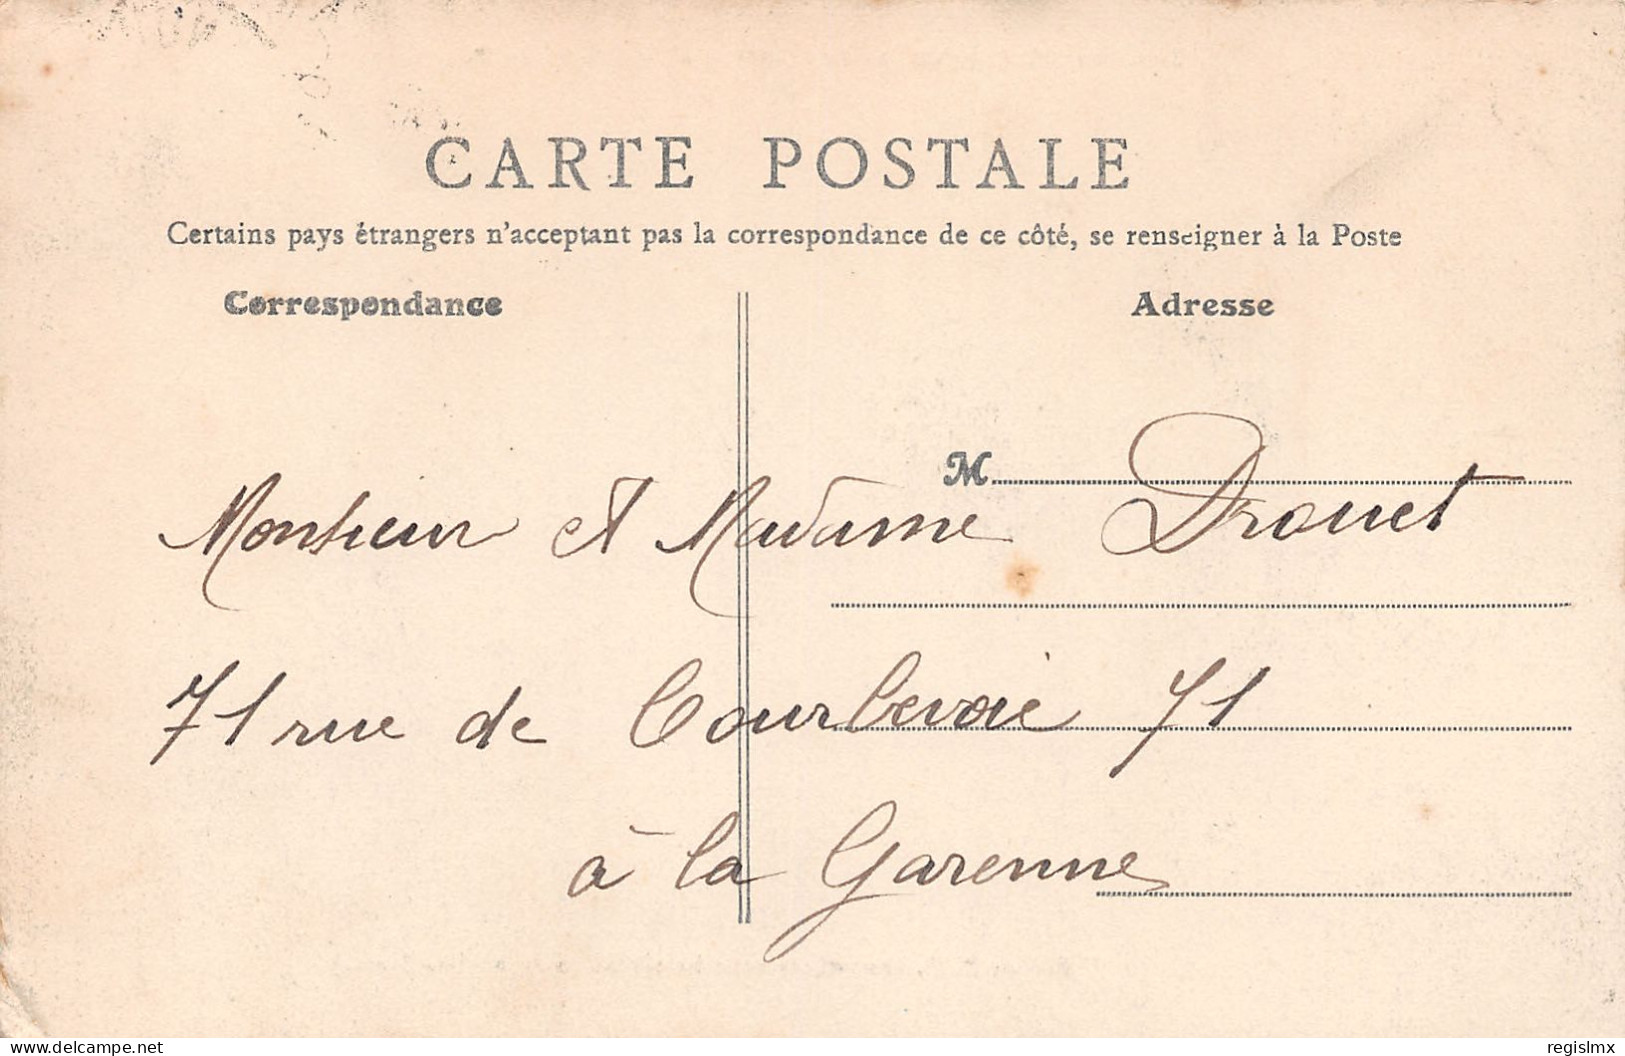 CARTE POSTALE
Certains pays étrangers n'acceptant pas la correspondance de ce côté, se renseigner à la Poste
Correspondance
Adresse
M
Monsieur et Madame Drouet
71 rue de Courbevoie 71
à la Garenne
www.delcampe.net
regislmx